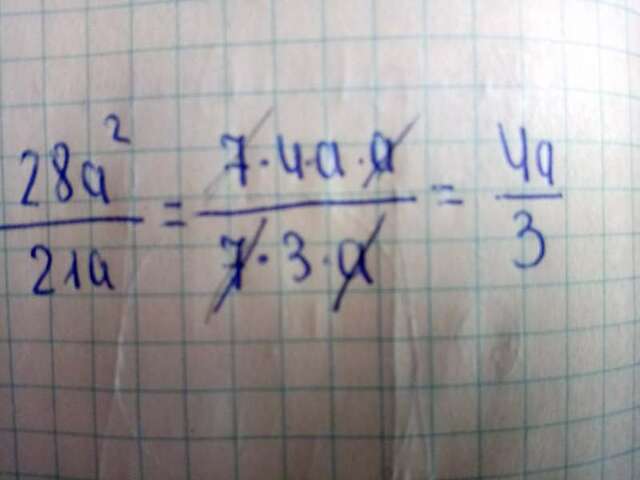 28a² / 21a = 7·4·a·a / 7·3·a = 4a / 3